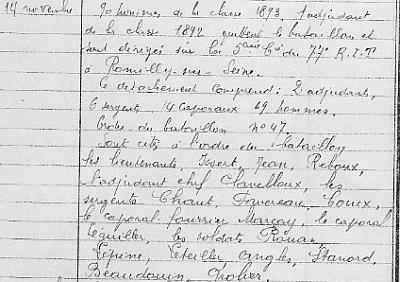 14 novembre 90 hommes de la classe 1893, 1 adjudant
de la classe 1892 quittent le bataillon et
sont dirigés sur la 5ème Cie du 77 R.I.T
à Romilly-sur-Seine.
le détachement comprend : 2 adjudants,
6 sergents 14 caporaux 69 hommes.
Ordre du bataillon n° 47.
Sont cités à l'ordre du bataillon
les lieutenants, Jean, Reboux,
l'adjudant chef Clavelloux, les
sergents Chaut, Favereau,
le caporal fourrier Marçay, le caporal
Lequiller, les soldats
Lépine, Angles,
Beaudouin, Grolier.